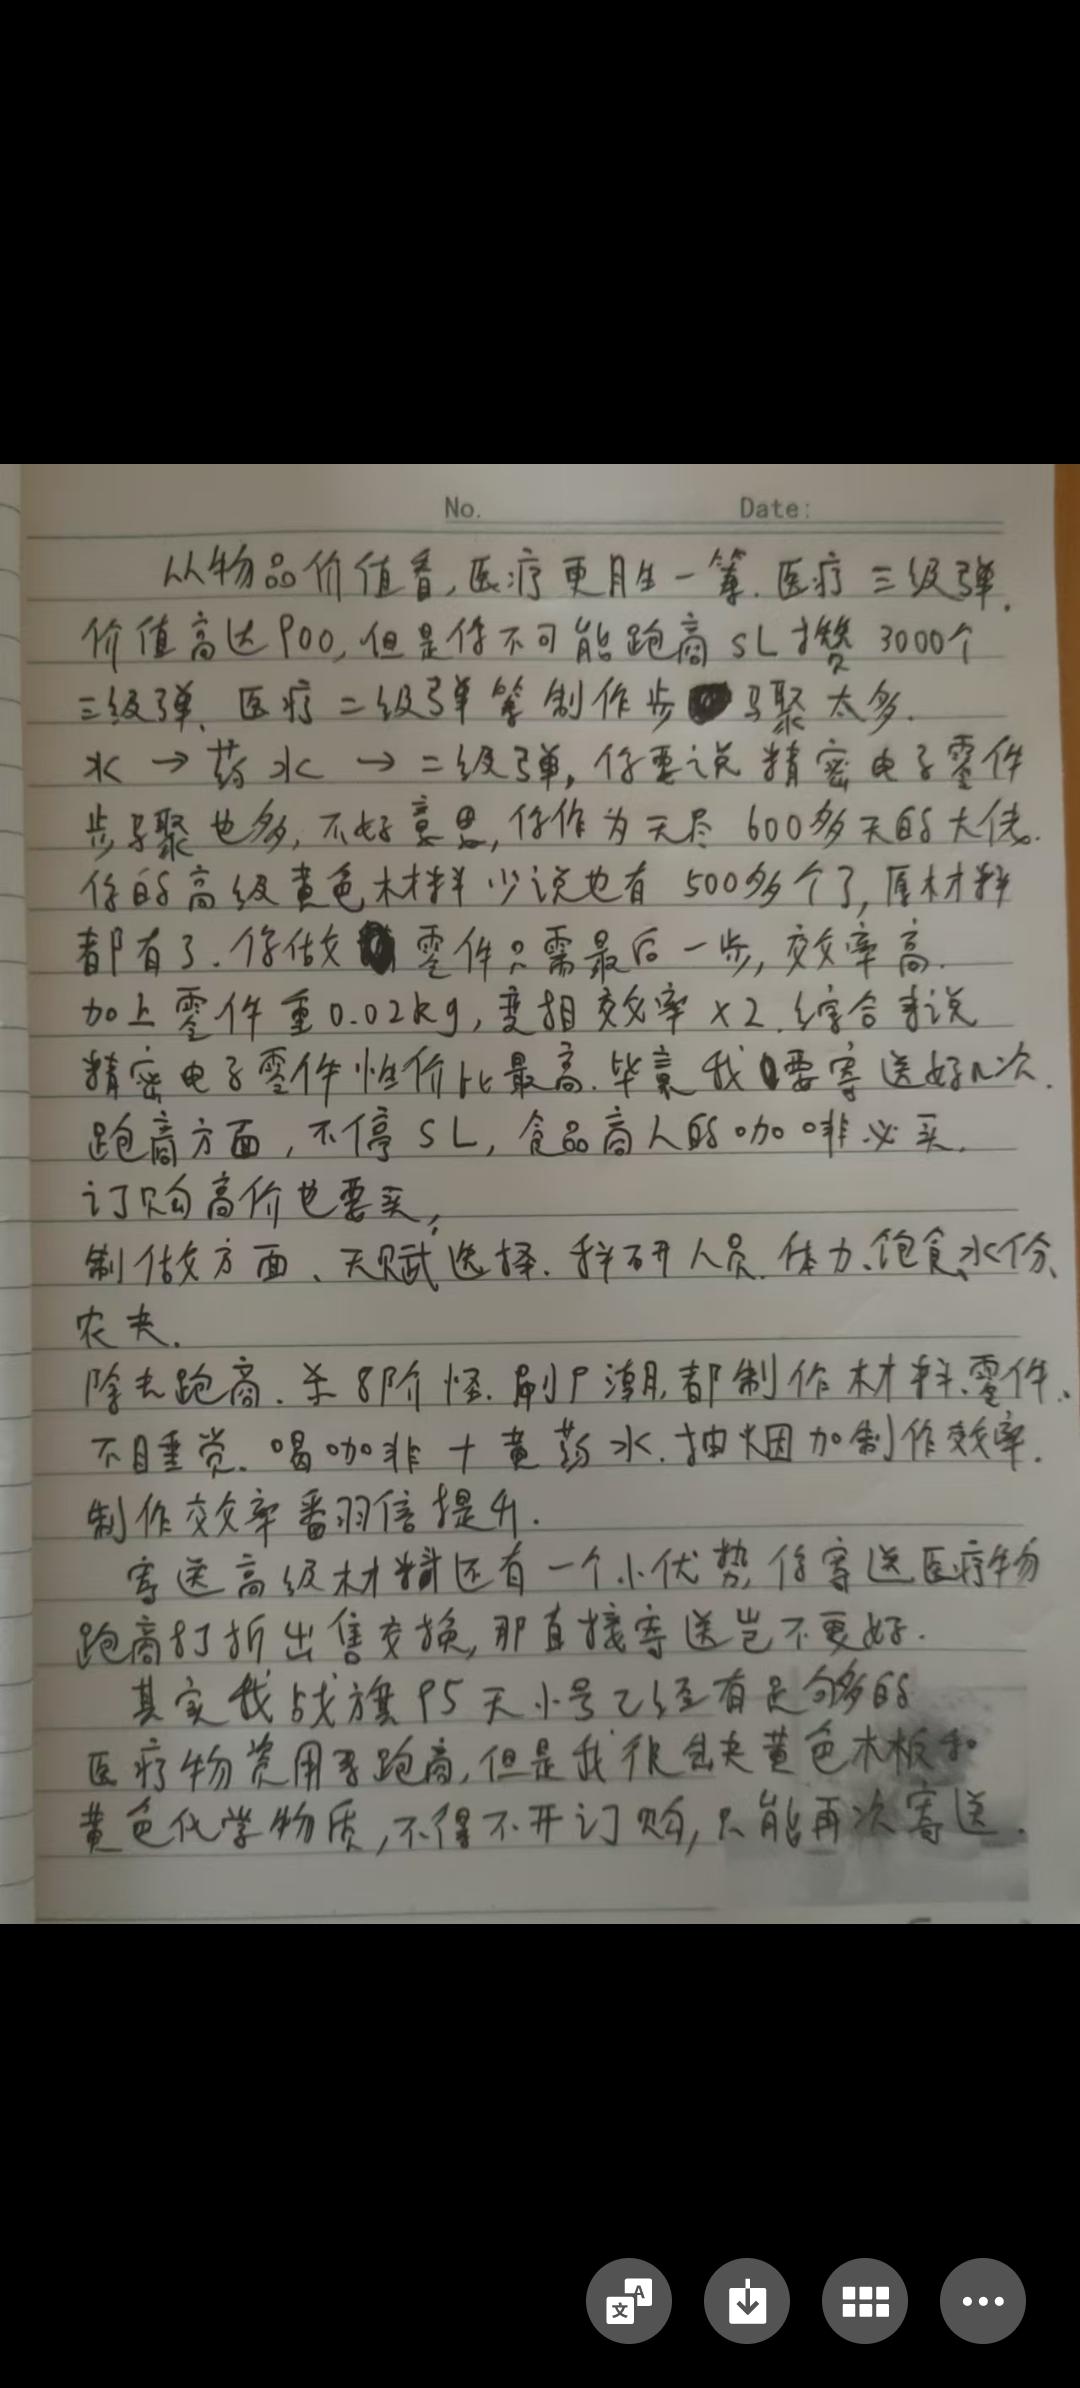 No. Date:
从物品价值看,医疗更胜一筹.医疗三级弹.
价值高达900,但是你不可能跑商SL攒3000个
三级弹.医疗二级弹等制作步骤太多.
水→药水→二级弹,你要说精密电子零件
步骤也多,不好意思,你作为天尽600多天的大佬.
你的高级黄色木材料少说也有500多个了,原材料
都有了.你做零件只需最后一步,效率高.
加上零件重0.02kg,变相效率×2.综合来说
精密电子零件性价比最高.毕竟我要寄送好几次.
跑商方面,不停SL,食品商人的咖啡必买.
订购高价也要买,
制做方面、天赋选择.科研人员.体力、饱食、水份、
农夫.
除去跑商、杀8阶怪.刷尸潮,都制作材料、零件、
不睡觉、喝咖非+黄药水.抽烟加制作效率.
制作效率番羽倍提升.
寄送高级材料还有一个小优势,你寄送医疗物
跑商打折出售交换,那直接寄送岂不更好.
其实我战旗95天小号已经有足够多的
医疗物资用来跑商,但是我很缺黄色木板和
黄色化学物质,不得不开订购,只能再次寄送.